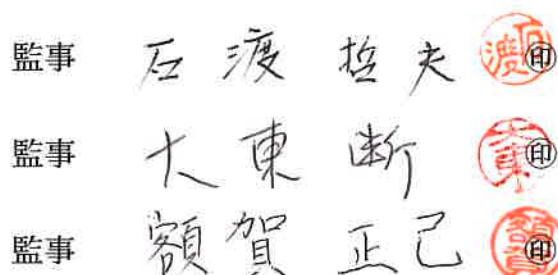 監事 石渡 哲夫 ㊞
監事 大東 断 ㊞
監事 額賀 正己 ㊞